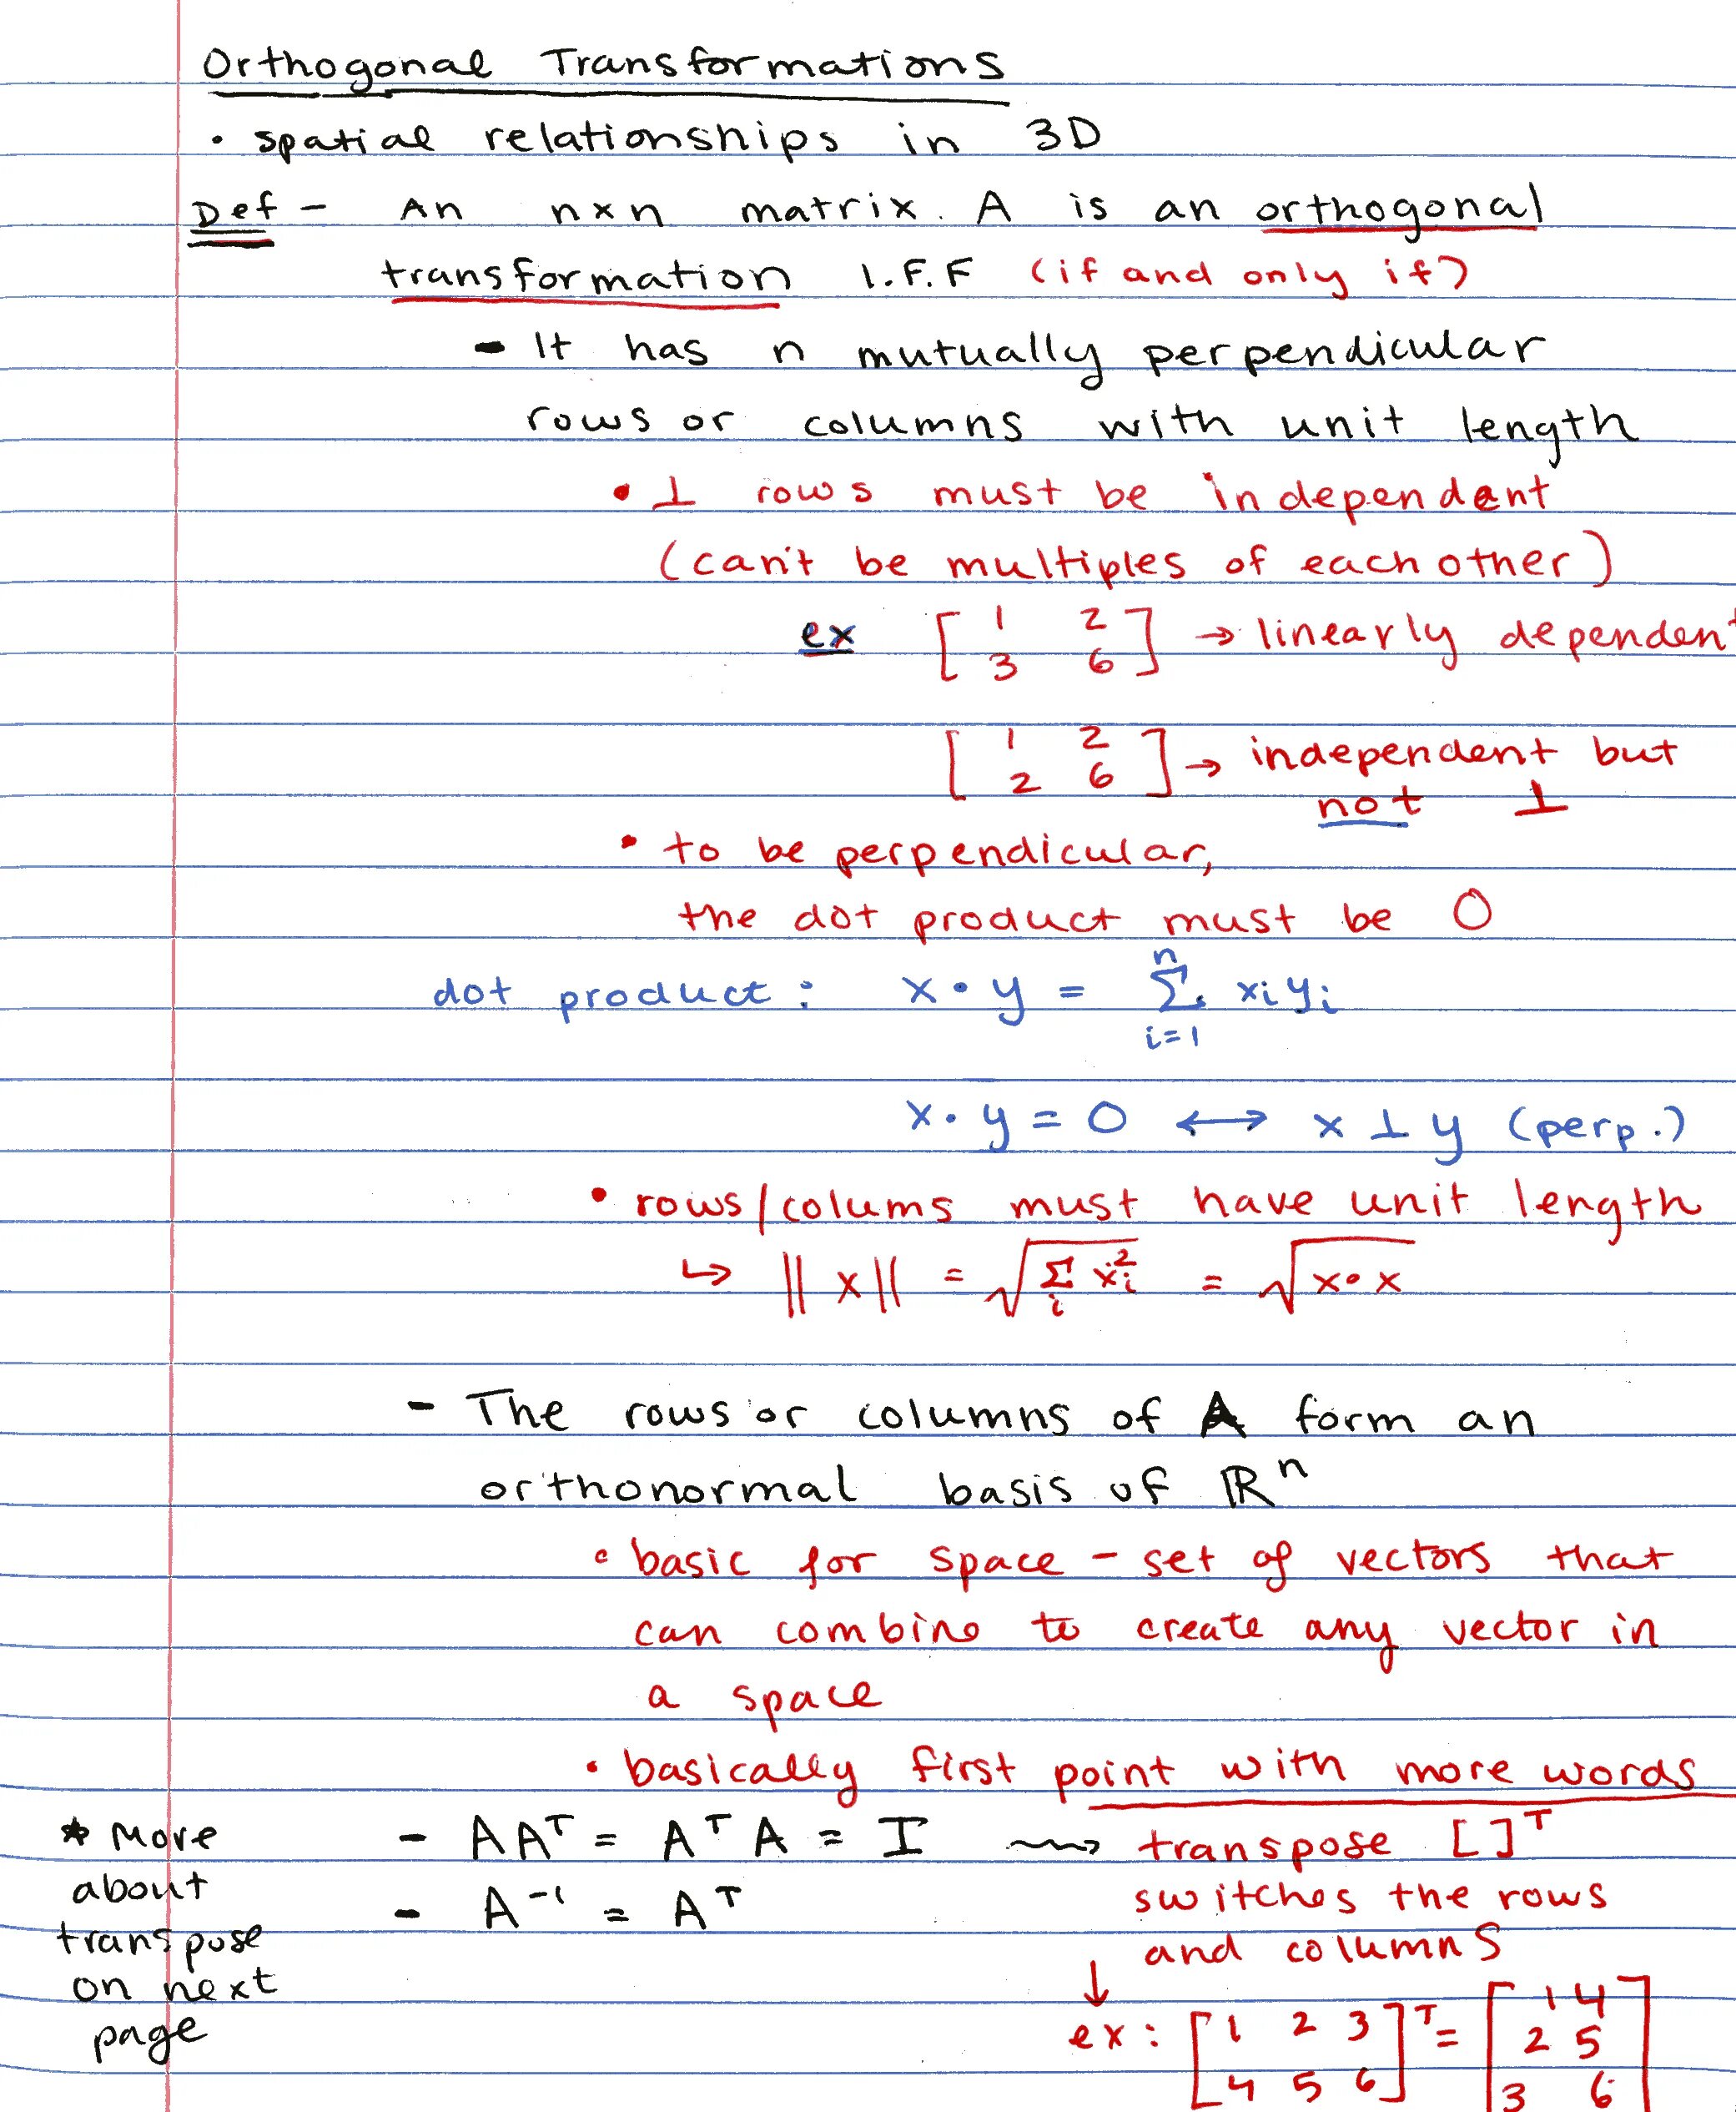 Orthogonal Transformations
• spatial relationships in 3D
Def – An nxn matrix. A is an orthogonal
transformation I.F.F (if and only if)
- It has n mutually perpendicular
rows or columns with unit length
• ⊥ rows must be independent
(can't be multiples of each other)
ex [ 1 2 ; 3 6 ] → linearly dependent
[ 1 2 ; 2 6 ] → independent but
not ⊥
• to be perpendicular,
the dot product must be 0
dot product: x • y = Σ_{i=1}^{n} xᵢ yᵢ
x • y = 0 ↔ x ⊥ y (perp.)
• rows/colums must have unit length
↳ ||x|| = √(Σᵢ xᵢ²) = √(x • x)
- The rows or columns of A form an
orthonormal basis of ℝⁿ
• basic for space – set of vectors that
can combine to create any vector in
a space
• basically first point with more words
- AAᵀ = AᵀA = I ⇝ transpose [ ]ᵀ
switches the rows
and columns
- A⁻¹ = Aᵀ
↓
ex: [ 1 2 3 ; 4 5 6 ]ᵀ = [ 1 4 ; 2 5 ; 3 6 ]
* More
about
transpose
on next
page